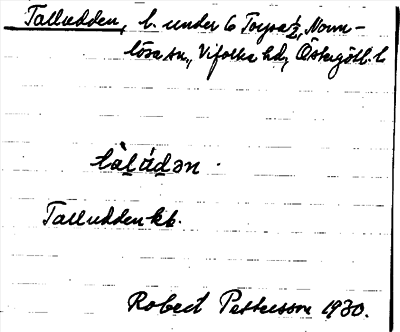 Talludden, l. under 6 Torpa ½, Norm-
lösa sn, Vifolka hd, Östergötl. l.
tàlúdən.
Talludden kb.
Robert Pettersson 1930.